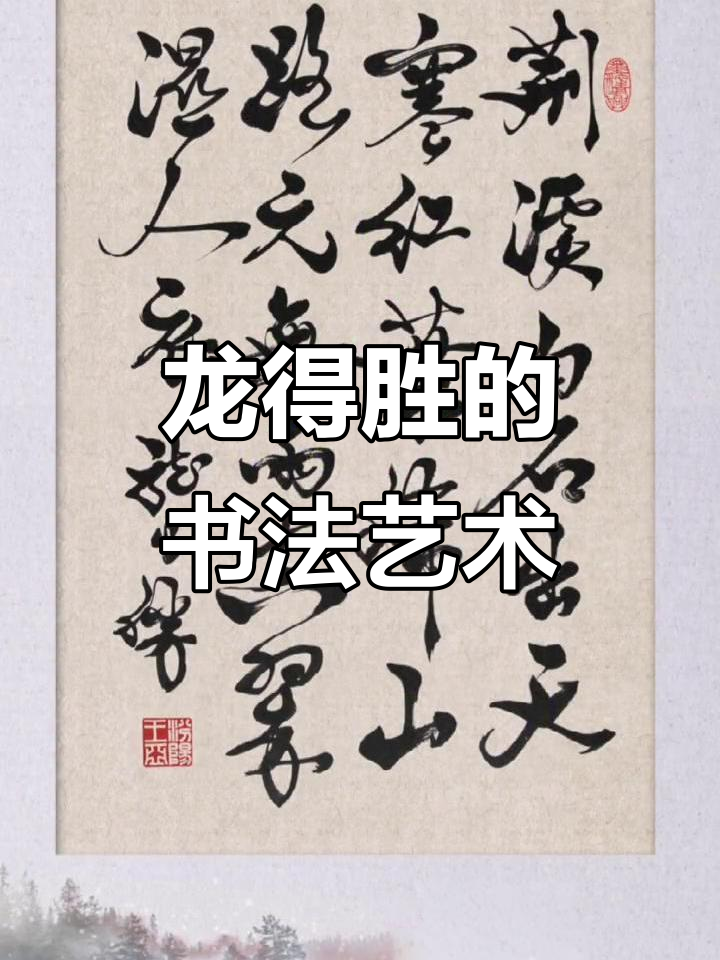 龙得胜的
书法艺术
荆溪白石出天
寒红葉稀山
路元無雨空翠
湿人衣 龍得勝